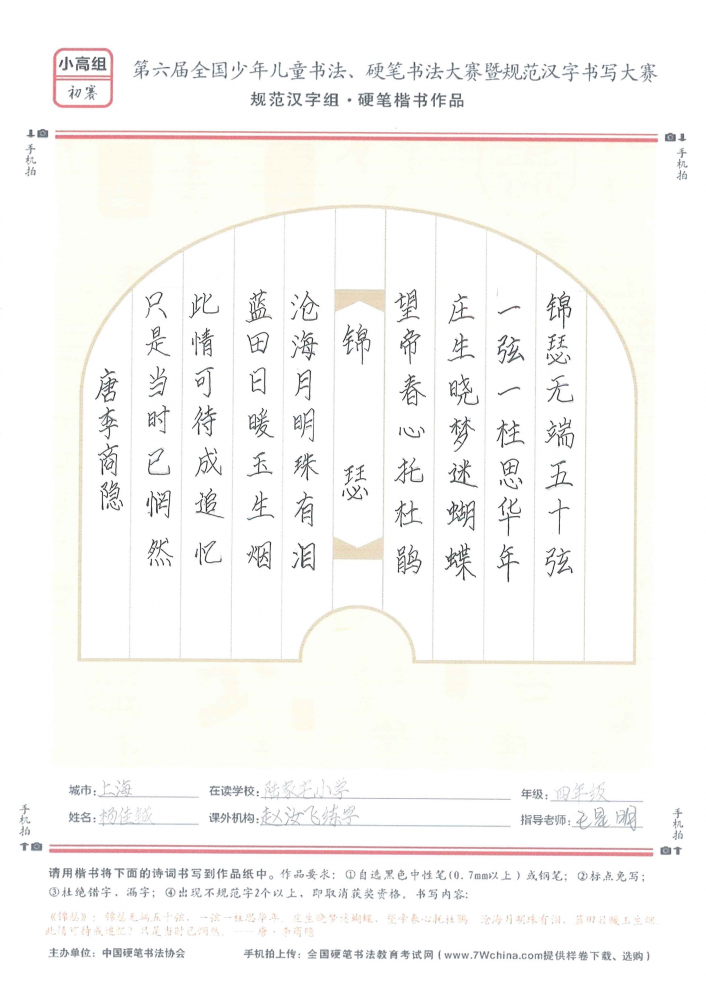 小高组
初赛
第六届全国少年儿童书法、硬笔书法大赛暨规范汉字书写大赛
规范汉字组·硬笔楷书作品
手机拍
手机拍
锦瑟无端五十弦
一弦一柱思华年
庄生晓梦迷蝴蝶
望帝春心托杜鹃
锦瑟
沧海月明珠有泪
蓝田日暖玉生烟
此情可待成追忆
只是当时已惘然
唐李商隐
城市：上海 在读学校：陆家宅小学 年级：四年级
姓名：杨佳 课外机构：赵汝飞练字 指导老师：毛星明
手机拍
手机拍
请用楷书将下面的诗词书写到作品纸中。作品要求：①自选黑色中性笔(0.7mm以上)或钢笔；②标点免写；
③杜绝错字、漏字；④出现不规范字2个以上，即取消获奖资格。书写内容：
《锦瑟》：锦瑟无端五十弦，一弦一柱思华年。庄生晓梦迷蝴蝶，望帝春心托杜鹃。沧海月明珠有泪，蓝田日暖玉生烟。
此情可待成追忆？只是当时已惘然。——唐·李商隐
主办单位：中国硬笔书法协会 手机拍上传：全国硬笔书法教育考试网（www.7Wchina.com提供样卷下载、选购）